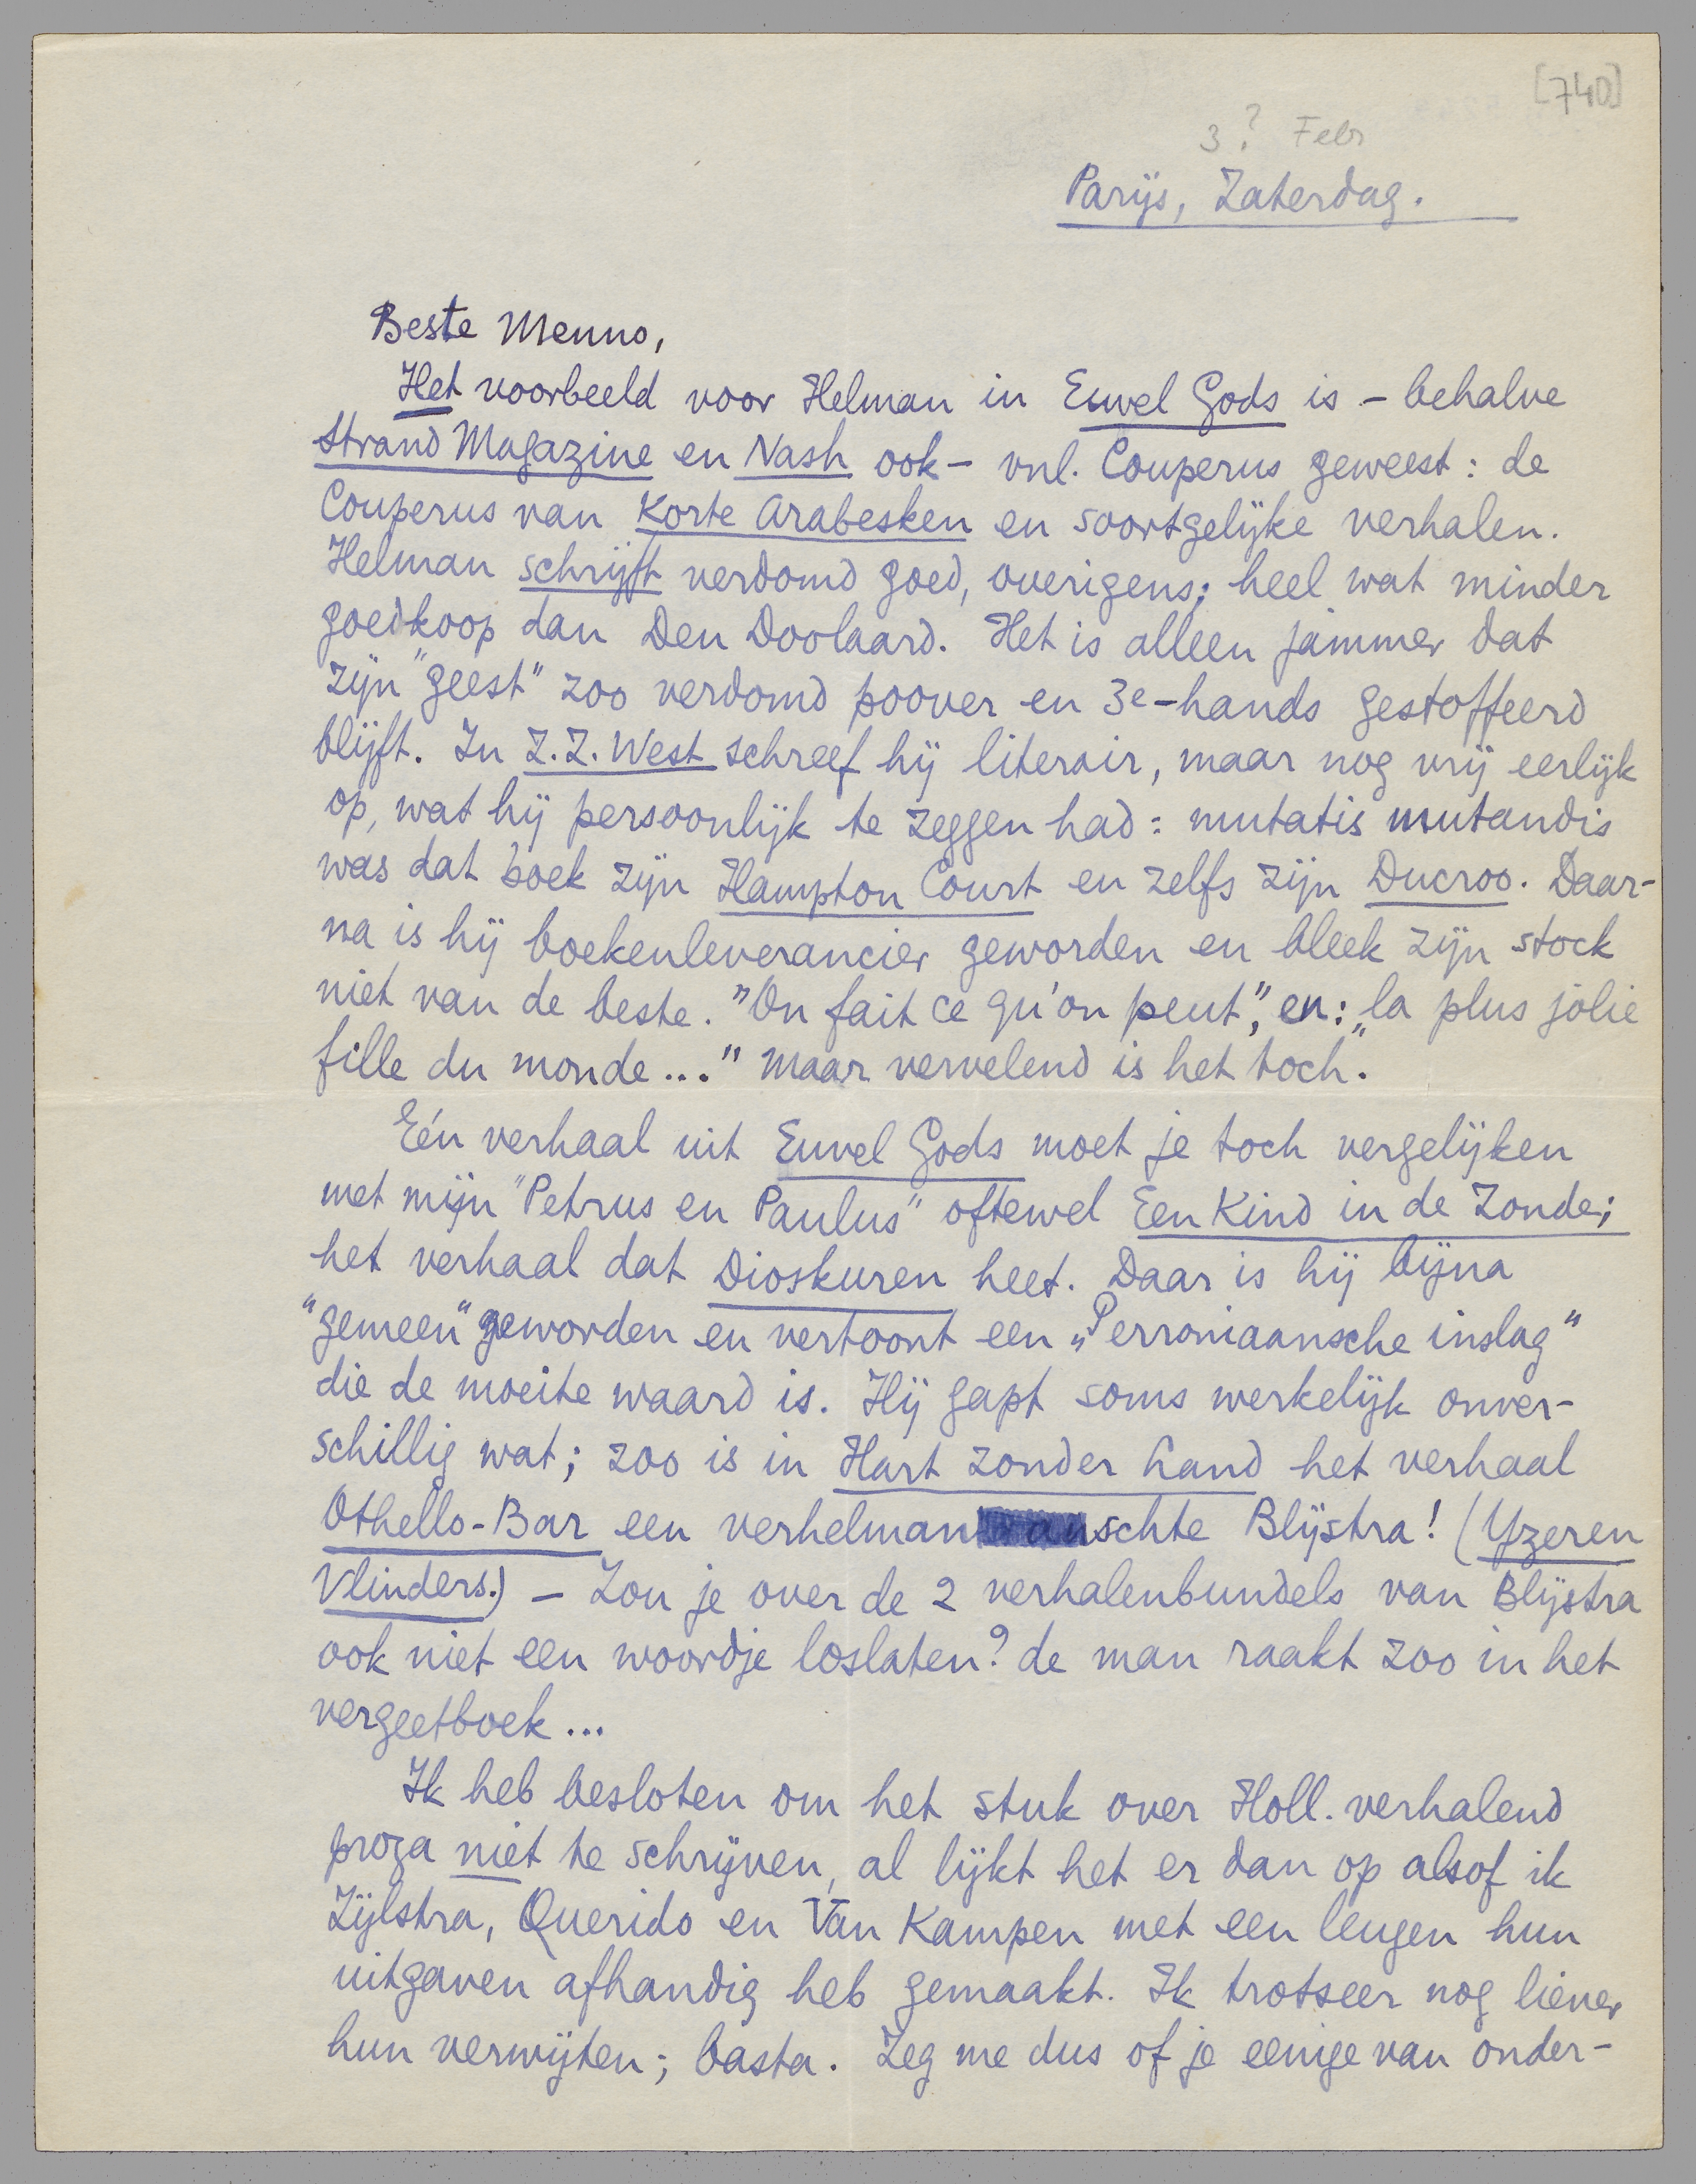 [740]
3? Febr
Parijs, Zaterdag.
Beste Menno,
Het voorbeeld voor Helman in Euvel Gods is – behalve
Strand Magazine en Nash ook – vnl. Couperus geweest: de
Couperus van Korte Arabesken en soortgelijke verhalen.
Helman schrijft verdomd goed, overigens; heel wat minder
goedkoop dan Den Doolaard. Het is alleen jammer dat
zijn "geest" zoo verdomd poover en 3e-hands gestoffeerd
blijft. In Z.Z. West schreef hij literair, maar nog vrij eerlijk
op, wat hij persoonlijk te zeggen had: mutatis mutandis
was dat boek zijn Hampton Court en zelfs zijn Ducroo. Daar-
na is hij boekenleverancier geworden en bleek zijn stock
niet van de beste. "On fait ce qu'on peut", en: „la plus jolie
fille du monde..." Maar vervelend is het toch.
Eén verhaal uit Euvel Gods moet je toch vergelijken
met mijn "Petrus en Paulus" oftewel Een Kind in de Zonde;
het verhaal dat Dioskuren heet. Daar is hij bijna
"gemeen" geworden en vertoont een „Perroniaansche inslag"
die de moeite waard is. Hij gapt soms werkelijk onver-
schillig wat; zoo is in Hart zonder Land het verhaal
Othello-Bar een verhelmanschte Blijstra! (Yzeren
Vlinders.) – Zou je over de 2 verhalenbundels van Blijstra
ook niet een woordje loslaten? de man raakt zoo in het
vergeetboek...
Ik heb besloten om het stuk over Holl. verhalend
proza niet te schrijven, al lijkt het er dan op alsof ik
Zijlstra, Querido en Van Kampen met een leugen hun
uitgaven afhandig heb gemaakt. Ik trotseer nog liever
hun verwijten; basta. Zeg me dus of je eenige van onder-